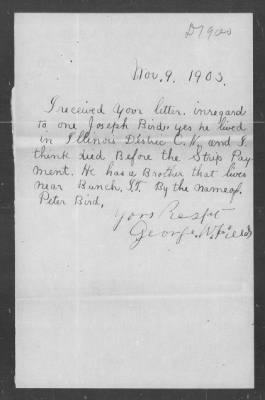 D1920
Nov. 9. 1903.
I received your letter. inregard
to one Joseph Bird. yes he lived
in Illinois Distric C. N, and I
think died, Before the Strip Pay
ment. He has a Brother that lives
near Bunch, I.T. By the name of.
Peter Bird,
Yors Respt
George. W. Fields